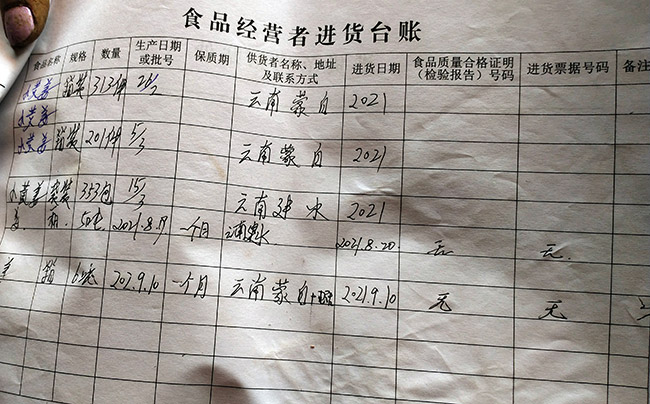 食品经营者进货台账
食品名称 规格 数量 生产日期或批号 保质期 供货者名称、地址及联系方式 进货日期 食品质量合格证明(检验报告)号码 进货票据号码 备注
小黄姜 箱装 313件 云南蒙自 2021
小黄姜
小黄姜 箱装 201件 15/3 云南蒙自 2021
小黄姜 袋装 353包 15/3 云南建水 2021
姜 箱 50 2021.8.17 一个月 云南建水 2021.8.20 无 无
姜 箱 202.9.10 一个月 云南蒙自 2021.9.10 无 无